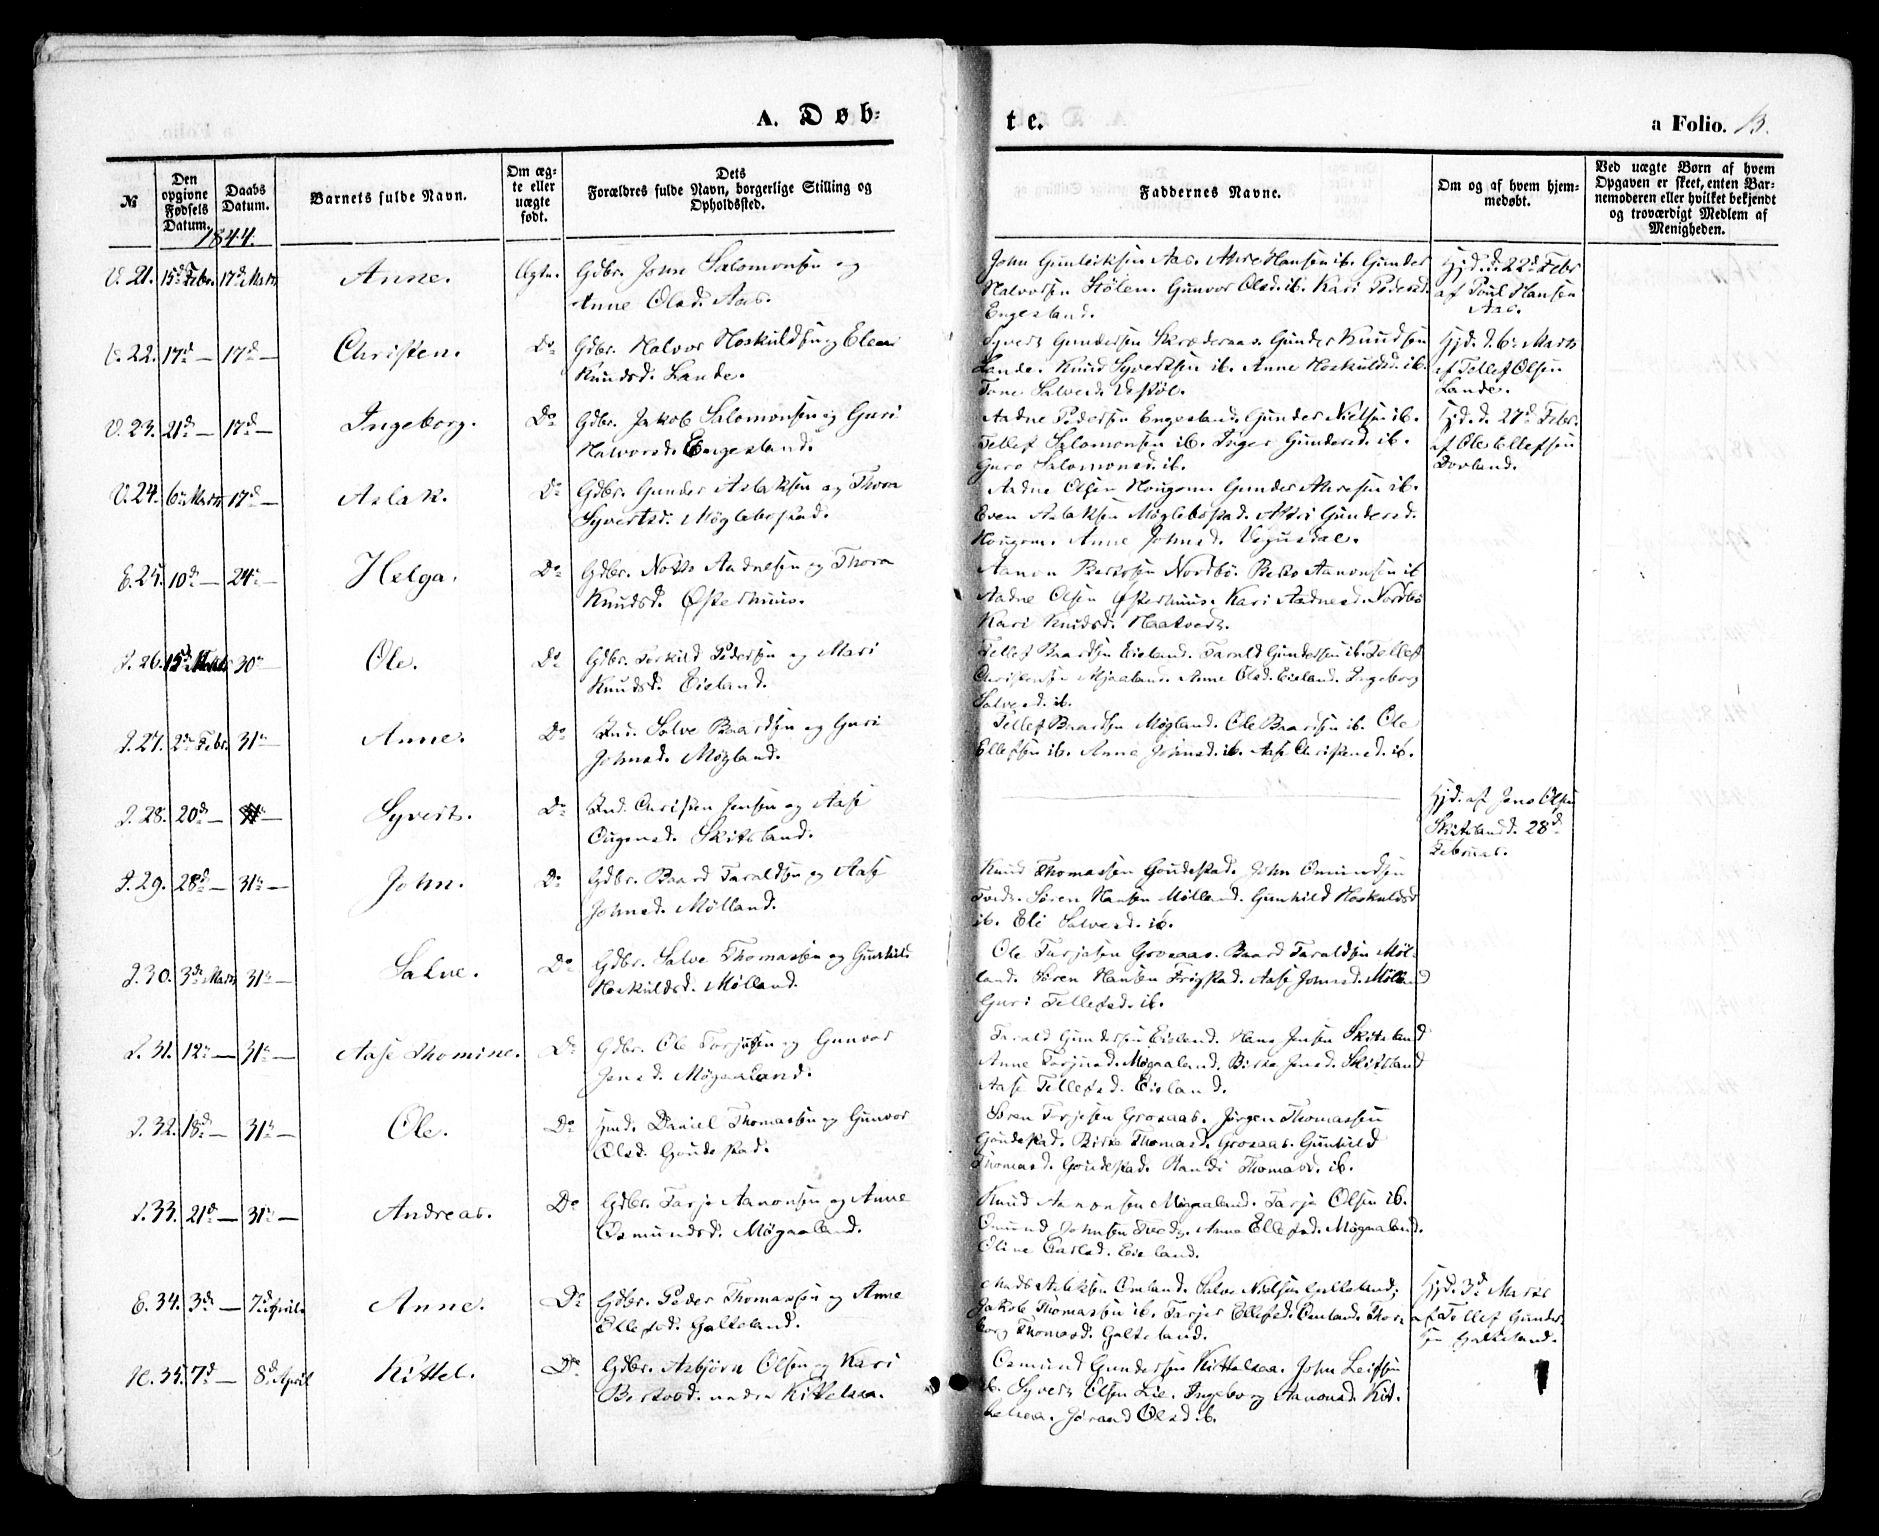 A. Døb-
te.
a Folio. 13.
№
Den opgivne Fødsels Datum.
Daabs Datum.
Barnets fulde Navn.
Om ægte eller uægte født.
Dets Forældres fulde Navn, borgerlige Stilling og Opholdssted.
Faddernes Navne.
Om og af hvem hjemmedøbt.
Ved uægte Børn af hvem Opgaven er skeet, enten Barnemoderen eller hvilket bekjendt og troværdigt Medlem af Menigheden.
1844.
V. 21. 15d Febr. 17d Marts Anne. Ægte. Gdbr. John Salomonsen og
Anne Olsd. Aas.
John Gunleiksen Aas. Ahre Hansen ib. Gunder
Halvorsen Stølen. Gunvor Olsd. ib. Kari Pedersd.
Engesland.
Hjd. d. 22d Febr
af Poul Hansen
Aas.
V. 22. 17d — 17d — Christen. Do Gdbr. Halvor Hoskuldsen og Elen
Knudsd. Lande.
Syvert Gundersen Skrædernas. Gunder Knudsen
Lande. Knud Syvertsen ib. Anne Hoskuldsd. ib.
Tone Salvesd. Vestøl.
Hjd. d. 6te Marts
af Tellef Olsen
Lande.
V. 23. 21d — 17d — Ingeborg. Do Gdbr. Jakob Salomonsen og Guri
Halvorsd. Engesland.
Aadne Pedersen Engesland. Gunder Nielsen ib.
Tellef Salomonsen ib. Inger Gundersd. ib.
Guro Salomonsd. ib.
Hjd. d. 27d Febr.
af Ole Tellefsen
Dovland.
V. 24. 6te Marts 17d — Aslak. Do Gdbr. Gunder Aslaksen og Thora
Syvertsd. Møglebøstad.
Aadne Olsen Hougom. Gunder Ahresen ib.
Even Aslaksen Møglebøstad. Affri Gundersd.
Hougom. Anne Johnsd. Vegusdal.
E. 25. 10d — 24de — Helga. Do Gdbr. Notto Aadnesen og Thora
Knudsd. Østerhuus.
Aanon Berthosen Nordbø. Berto Aanonsen ib
Aadne Olsen Østerhuus. Kari Aadnesd. Nordbø
Kari Knudsd. Haatvedt.
I. 26. 15d Marts 30te — Ole. Do Gdbr. Terkild Pedersen og Mari
Knudsd. Eieland.
Tellef Baardsen Eieland. Tarald Gundersen ib. Tellef
Christensen Mjaaland. Anne Olsd. Eieland. Ingeborg
Salvesd. ib.
I. 27. 2den Febr. 31te — Anne. Do Ind. Salve Baardsen og Guri
Johnsd. Møgland.
Tellef Baardsen Møgland. Ole Baardsen ib. Ole
Ellefsen ib. Anne Johnsd. ib. Aase Christensd. ib.
I. 28. 20de — — Syvert. Do Ind. Christen Jensen og Aase
Ougensd. Skitsland.
Hjd. af Jens Olsen
Skitsland d. 28d
Februar.
I. 29. 28d — 31te — John. Do Gdbr. Baard Taraldsen og Aase
Johnsd. Mølland.
Knud Thomassen Goudestad. John Osmundsen
Tveds. Søren Hansen Mølland. Gunhild Hoskuldsd
ib. Eli Salvesd. ib.
I. 30. 3de Marts 31te — Salve. Do Gdbr. Salve Thomassen og Gunhild
Hoskuldsd. Mølland.
Ole Tarjesen Grosaas. Baard Taraldsen Møl-
land. Søren Hansen Frigstad. Aase Johnsd. Mølland
Guri Tellefsd. ib.
I. 31. 12te — 31te — Aase Thomine. Do Gdbr. Ole Torjusen og Gunvor
Jensd. Møgaaland.
Tarald Gundersen Eieland. Hans Jensen Skitsland
Anne Torjusd. Møgaaland. Birte Jensd. Skitsland
Aase Tellefsd. Eieland.
I. 32. 18d — 31te — Ole. Do Hmd. Daniel Thomassen og Gunvor
Olsd. Goudestad.
Søren Tarjesen Grosaas. Jørgen Thomassen
Goudestad. Birte Thomasd. Grosaas. Gunhild
Thomasd. Goudestad. Randi Thomasd. ib.
I. 33. 21d — 31te — Andreas. Do Gdbr. Tarje Aanonsen og Anne
Osmundsd. Møgaaland.
Knud Aanonsen Møgaaland. Tarje Olsen ib.
Osmund Johnsen Tveds. Anne Ellefsd. Møgaaland.
Oline Carlsd. Eieland.
E. 34. 3d — 7d April Anne. Do Gdbr. Peder Thomassen og Anne
Ellefsd. Galteland.
Mads Aslaksen Omland. Salve Nielsen Galteland;
Jakob Thomassen ib. Tarjer Ellefsd. Omland. Thor-
borg Thomasd. Galteland.
Hjd. 3d Marts
af Tellef Gunder
sen Galteland.
H. 35. 7d — 8d April Kittel. Do Gdbr. Asbjørn Olsen og Kari
Berthosd. nedre Kittelsaa.
Osmund Gundersen Kittelsaa. John Leifsen
ib. Syvert Olsen Lie. Ingeborg Aanonsd. Kit-
telsaa. Jørand Olsd. ib.